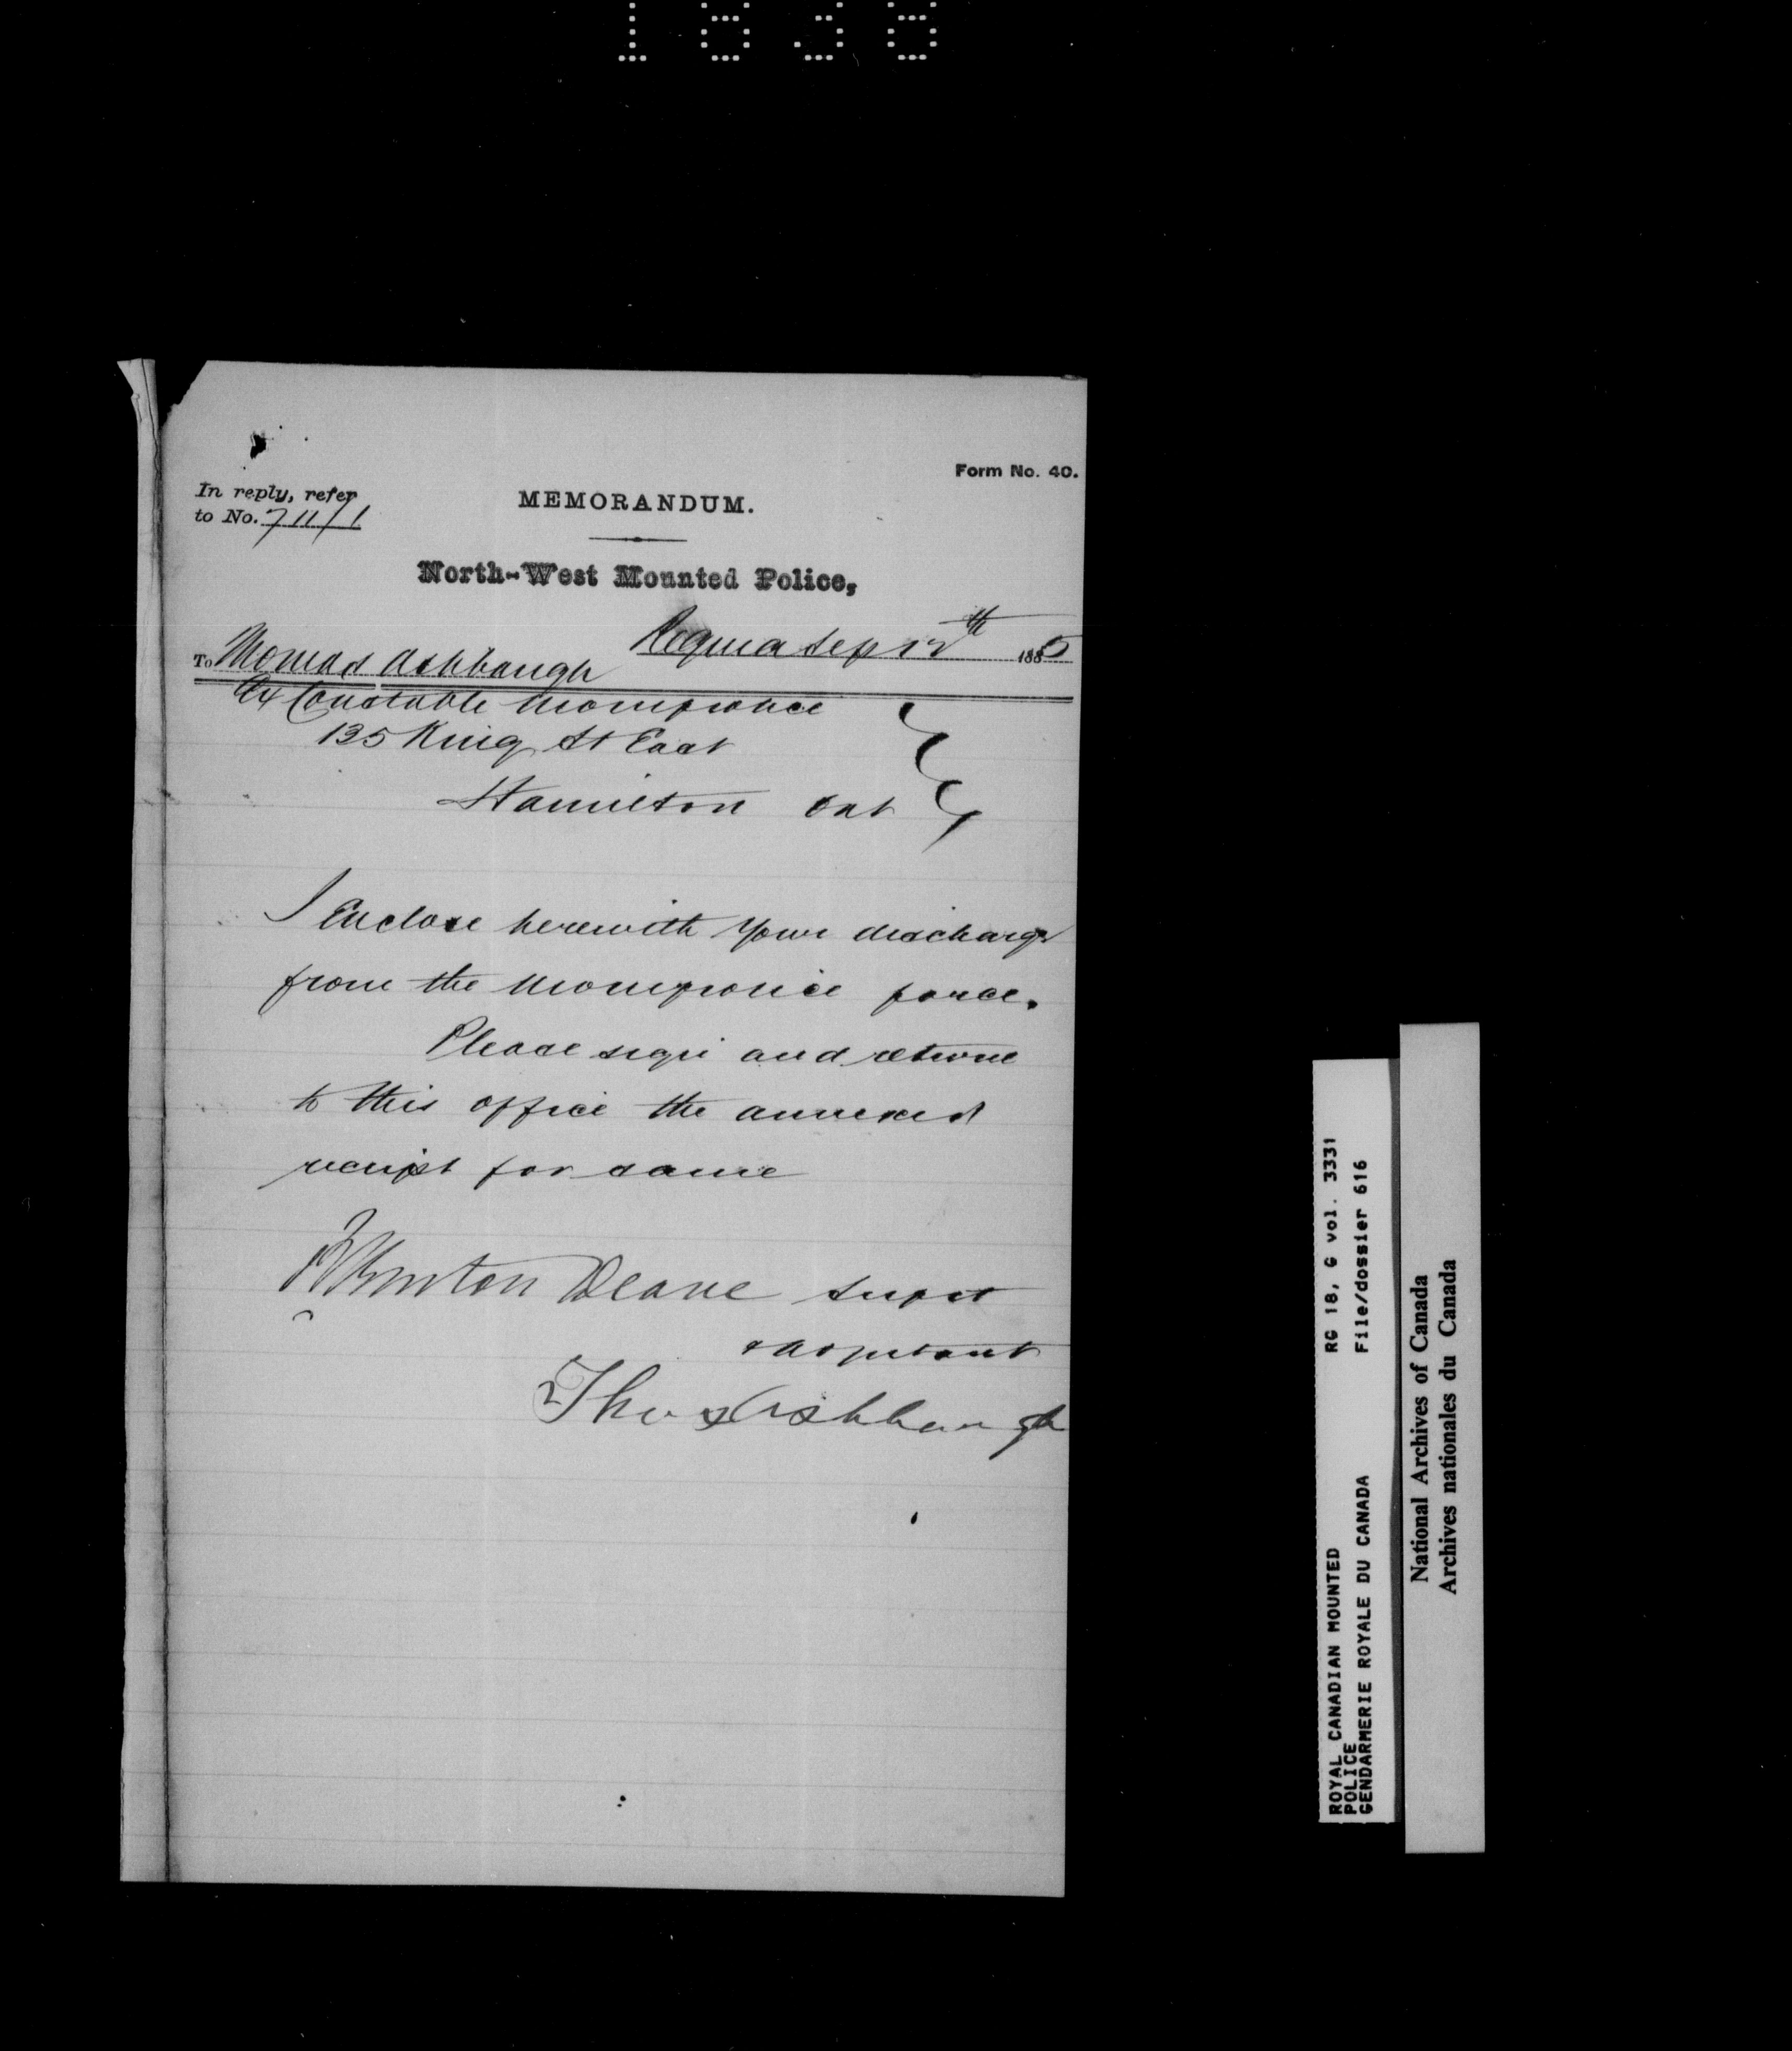 Form No. 40.
In reply, refer
to No. 711/1
MEMORANDUM.
North-West Mounted Police,
Regina Sep 12th 1885
To Thomas Ashbaugh
Ex Constable N W M police
135 King St East
Hamilton Ont
I Enclose herewith your discharge
from the N W M police force.
Please sign and return
to this office the annexed
receipt for same
R Burton Deane Supt
& Adjutant
Thos Ashbaugh
ROYAL CANADIAN MOUNTED
POLICE
GENDARMERIE ROYALE DU CANADA
RG 18, G vol. 3331
File/dossier 616
National Archives of Canada
Archives nationales du Canada